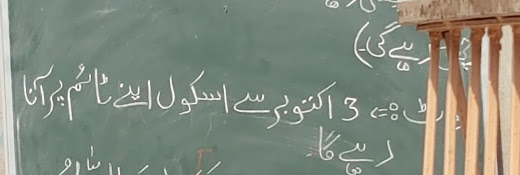 رہے گی)
نوٹ:= 3 اکتوبر سے اسکول اپنے ٹائم پر آنا
رہے گا۔